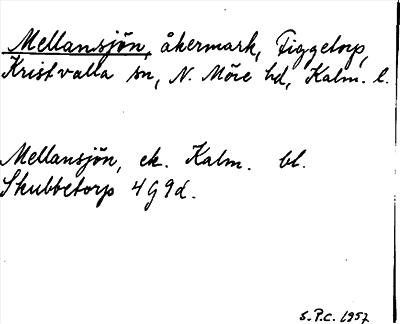 Mellansjön, åkermark, Figgetorp,
Kristvalla sn, N. Möre hd, Kalm. l.
Mellansjön, ek. Kalm. bl.
Skubbetorp 4G9d.
S.P.C. 1957